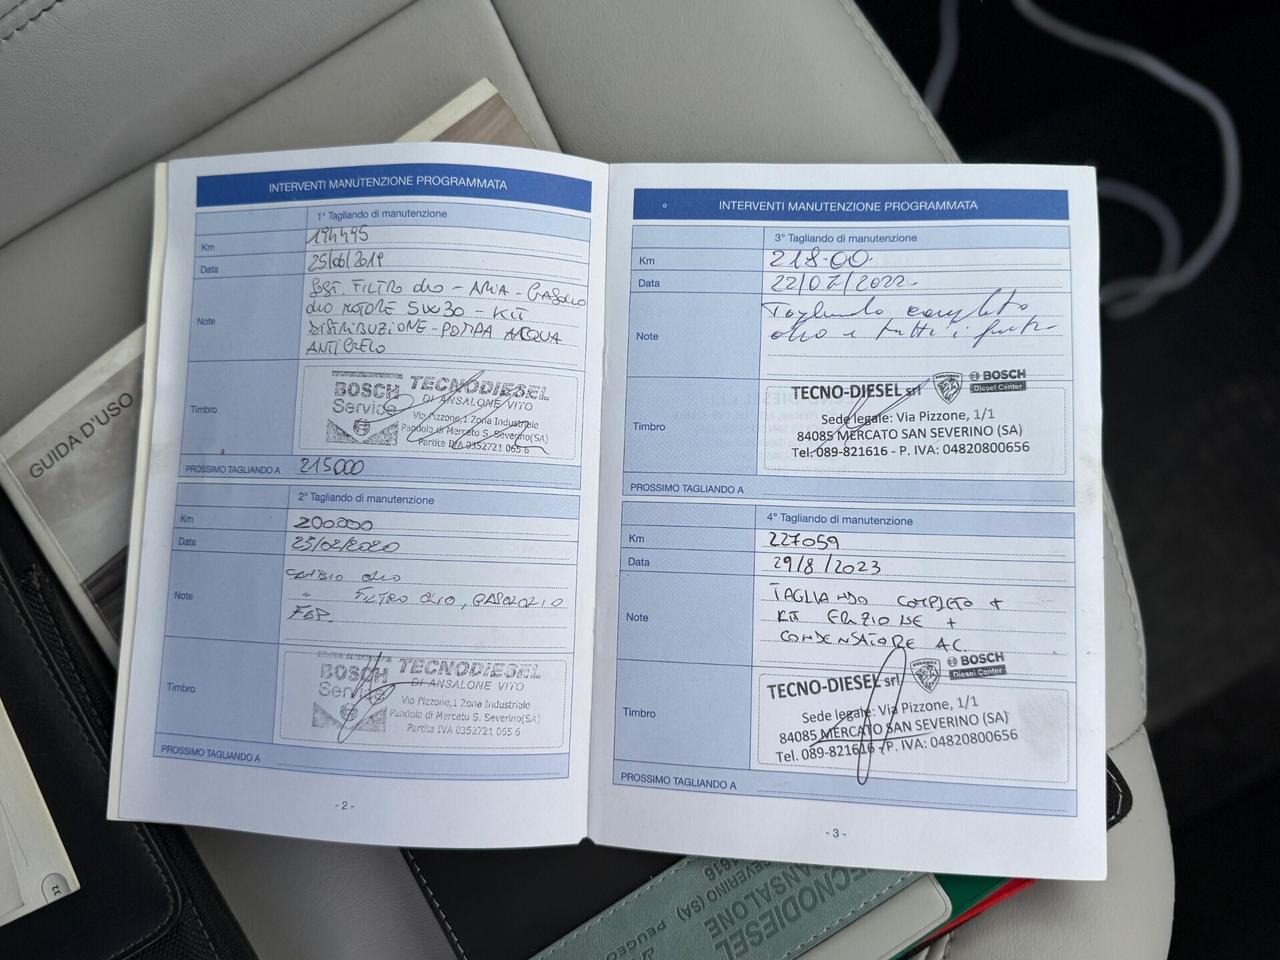 INTERVENTI MANUTENZIONE PROGRAMMATA
1° Tagliando di manutenzione
Km 194495
Data 25/06/2019
Note
SOST. FILTRO OLIO - ARIA - GASOLIO
OLIO MOTORE 5W30 - KIT
DISTRIBUZIONE - POMPA ACQUA
ANTIGELO
Timbro
BOSCH Service
TECNODIESEL
DI ANSALONE VITO
Via Pizzone,1 Zona Industriale
Pandola di Mercato S. Severino(SA)
Partita IVA 0352721 065 6
PROSSIMO TAGLIANDO A 215000
2° Tagliando di manutenzione
Km 200000
Data 25/02/2020
Note
CAMBIO OLIO
" FILTRO OLIO, GASOLIO
FAP.
Timbro
BOSCH Service
TECNODIESEL
DI ANSALONE VITO
Via Pizzone,1 Zona Industriale
Pandola di Mercato S. Severino(SA)
Partita IVA 0352721 065 6
PROSSIMO TAGLIANDO A
- 2 -
INTERVENTI MANUTENZIONE PROGRAMMATA
3° Tagliando di manutenzione
Km 218.00.
Data 22/07/2022.
Note
Tagliando completo
olio e tutti i filtri
Timbro
TECNO-DIESEL srl
PEUGEOT
BOSCH
Diesel Center
Sede legale: Via Pizzone, 1/1
84085 MERCATO SAN SEVERINO (SA)
Tel. 089-821616 - P. IVA: 04820800656
PROSSIMO TAGLIANDO A
4° Tagliando di manutenzione
Km 227059
Data 29/8/2023
Note
TAGLIANDO COMPLETO +
KIT FRIZIONE +
CONDENSATORE A.C.
Timbro
TECNO-DIESEL srl
PEUGEOT
BOSCH
Diesel Center
Sede legale: Via Pizzone, 1/1
84085 MERCATO SAN SEVERINO (SA)
Tel. 089-821616 - P. IVA: 04820800656
PROSSIMO TAGLIANDO A
- 3 -
GUIDA D'USO
32
TECNODIESEL
ANSALONE
SEVERINO (SA)
PEUGEO
1616